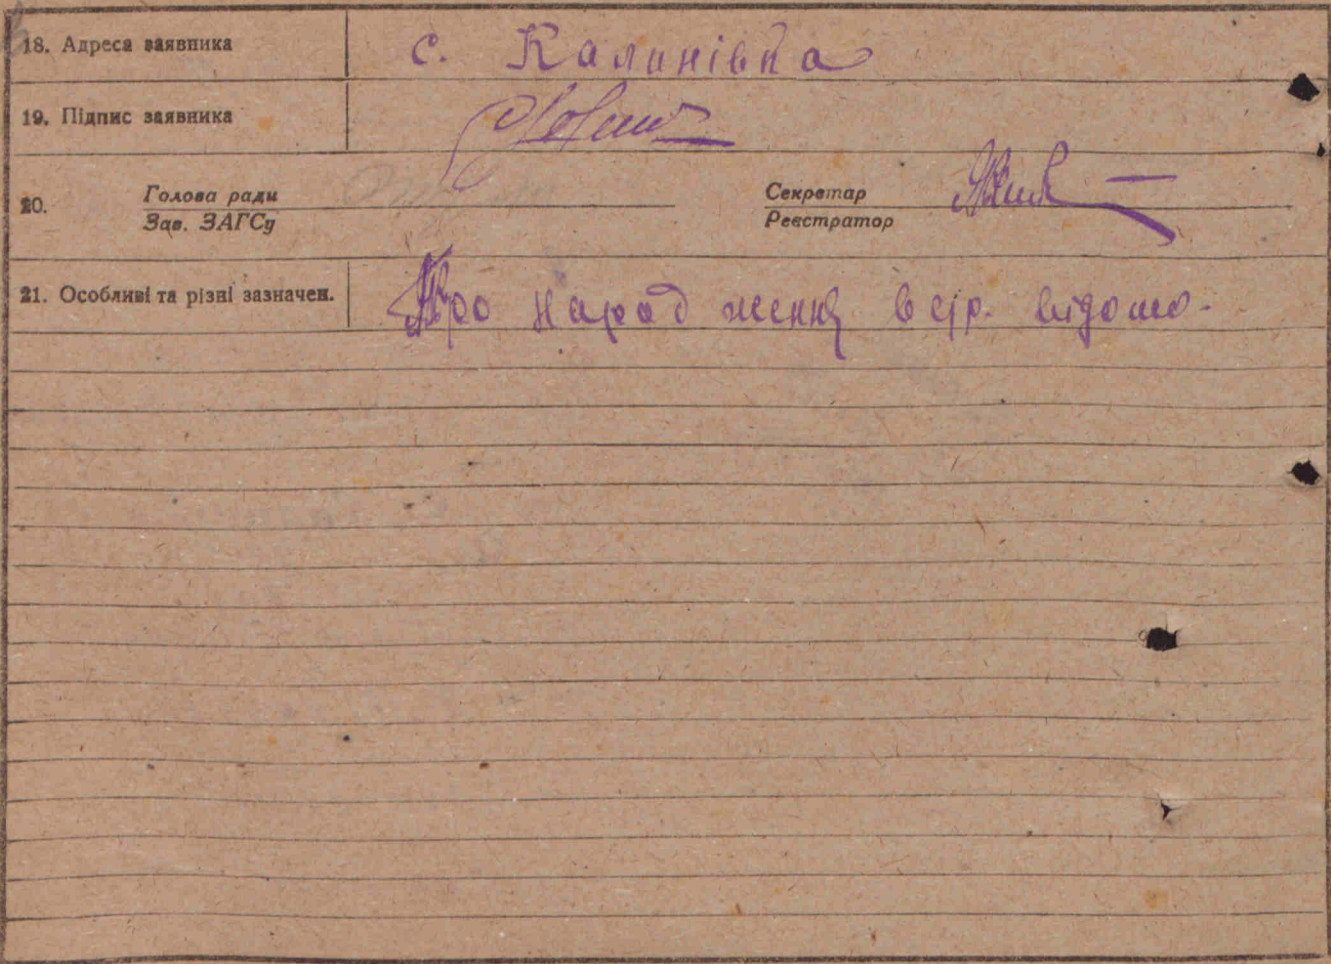 18. Адреса заявника с. Калинівка
19. Підпис заявника
20. Голова ради Секретар
Зав. ЗАГСу Реєстратор
21. Особливі та різні зазначен. Про народження в с/р. відомо.